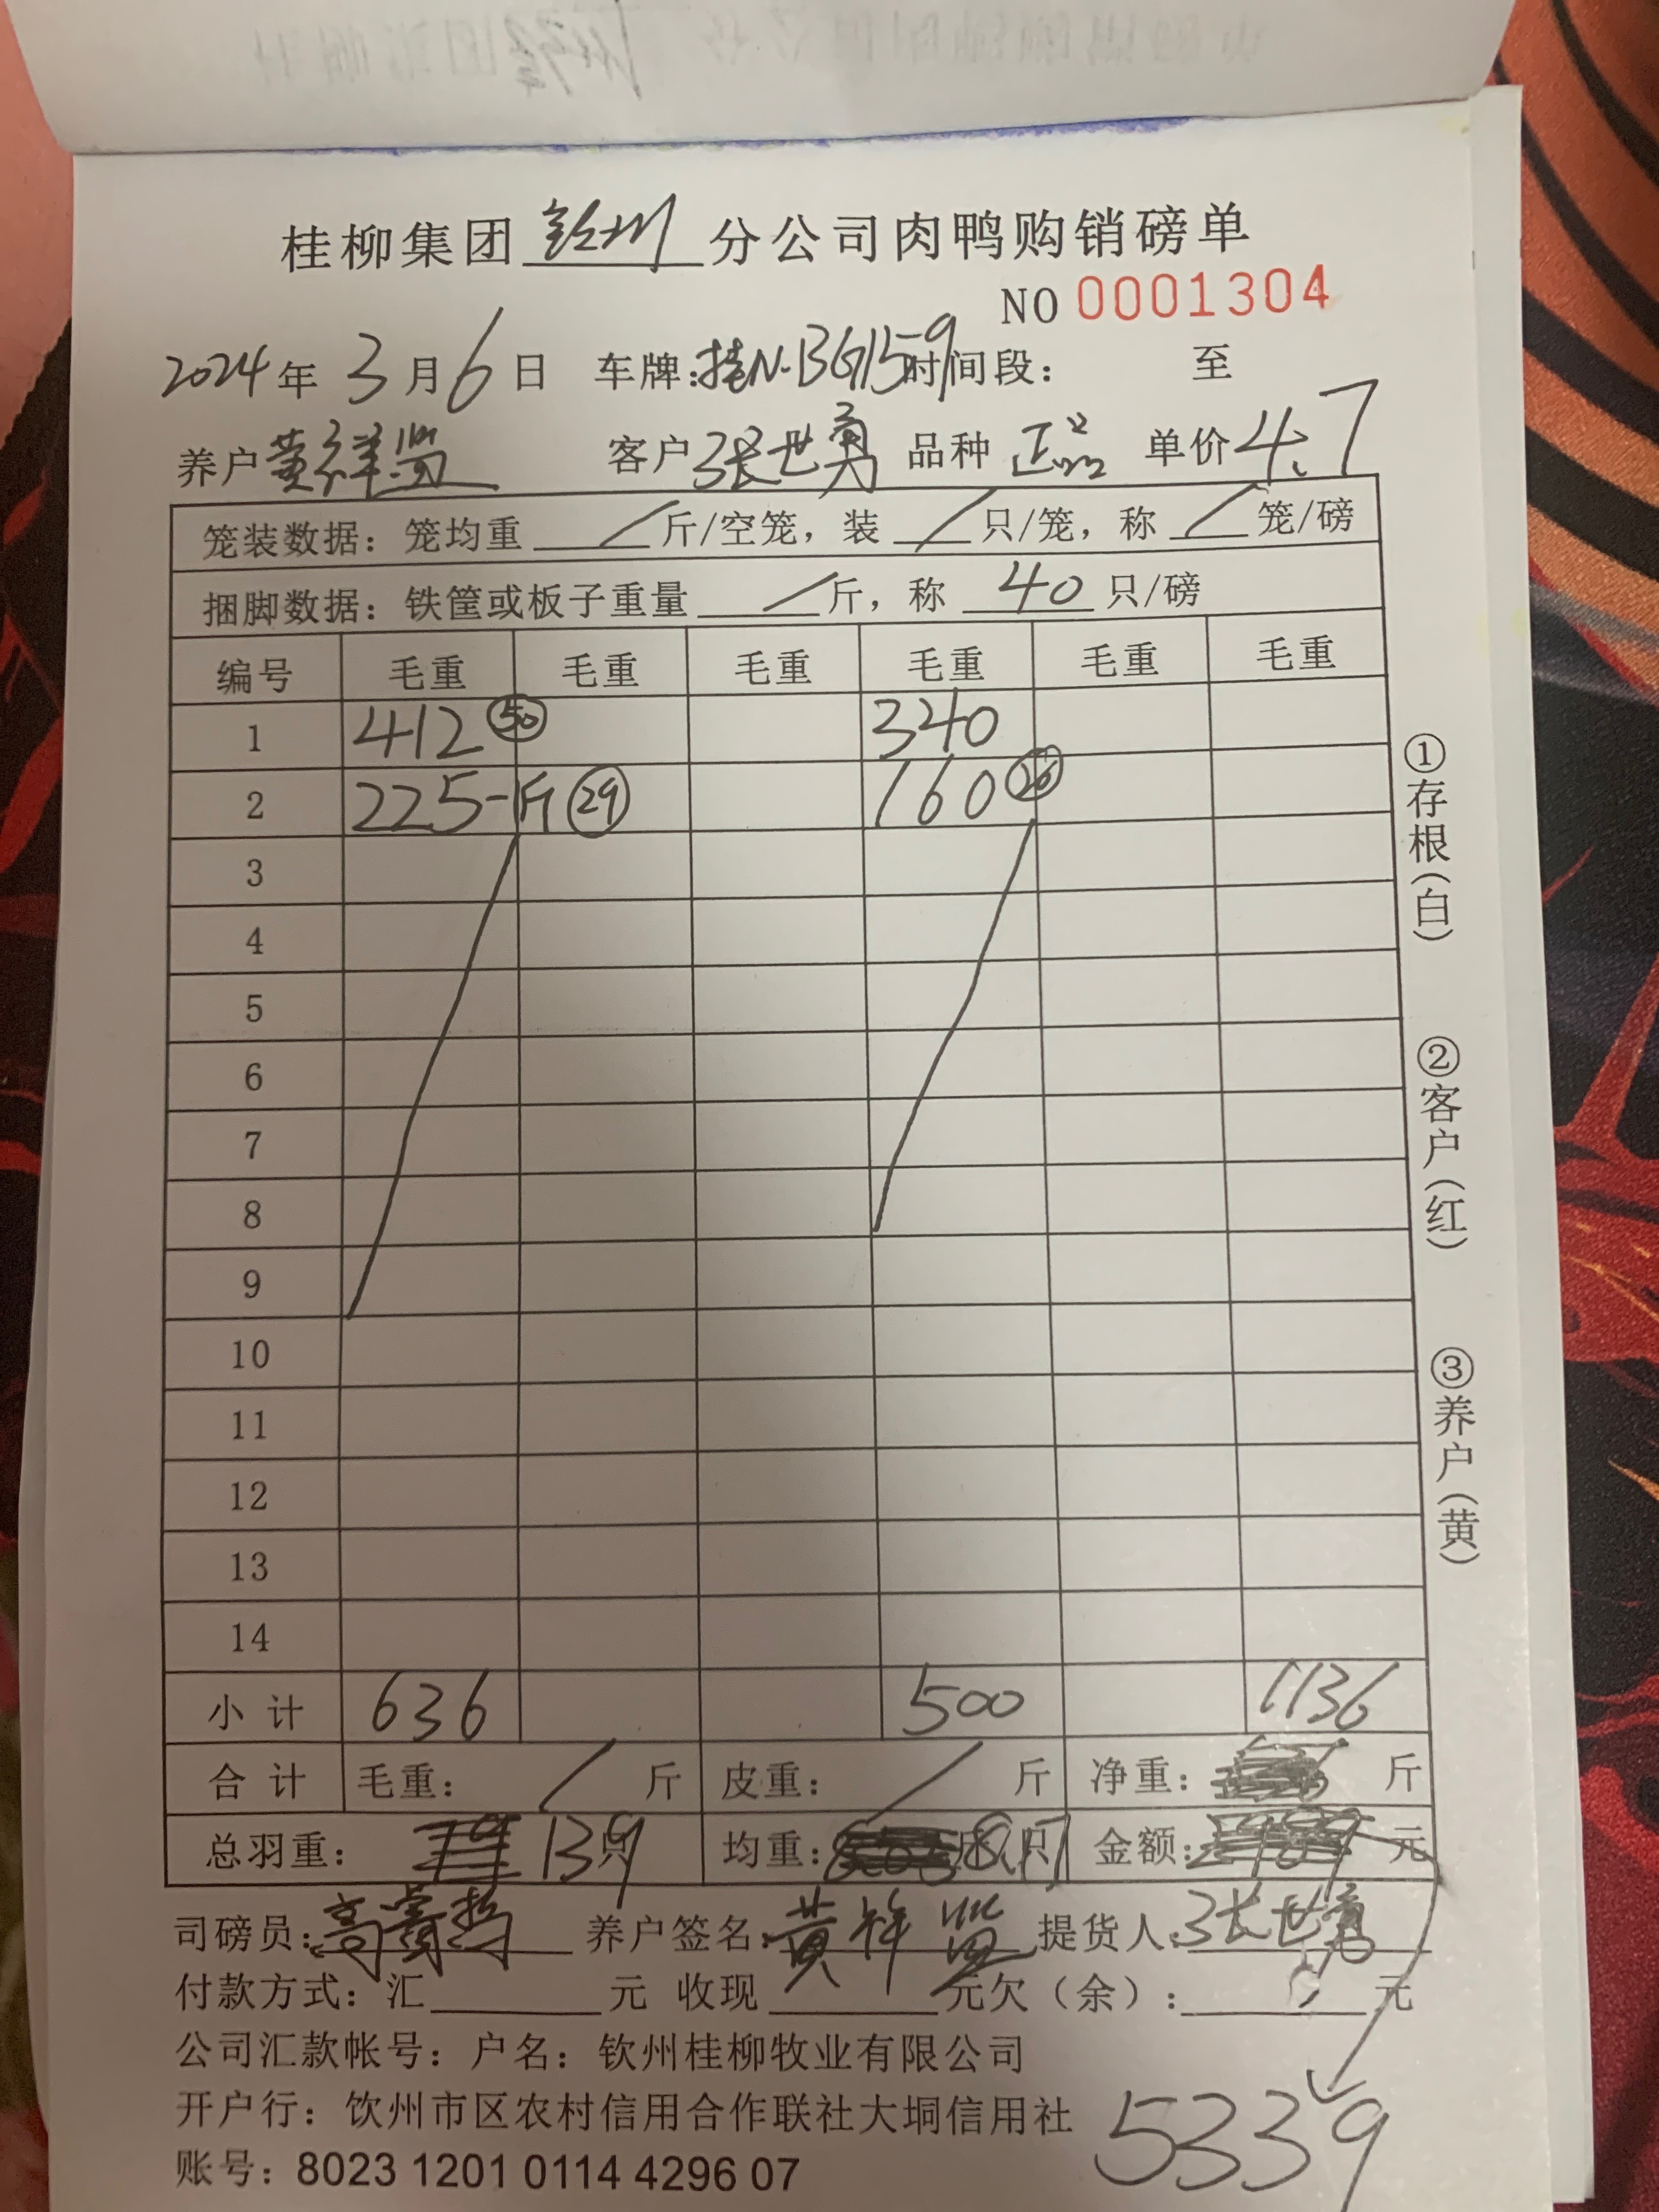 桂柳集团钦州分公司肉鸭购销磅单
NO 0001304
2024年3月6日 车牌:桂N·BG1159时间段: 至
养户黄祥监 客户张世勇 品种 正品 单价4.7
笼装数据: 笼均重 / 斤/空笼, 装 / 只/笼, 称 / 笼/磅
捆脚数据: 铁筐或板子重量 / 斤, 称 40 只/磅
编号 毛重 毛重 毛重 毛重 毛重 毛重
1 412 50 340
2 225-1斤 29 160
3
4
5
6
7
8
9
10
11
12
13
14
小计 636 500 1136
合计 毛重: / 斤 皮重: / 斤 净重: 斤
总羽重: 139只 均重: 斤8.17只 金额: 元
司磅员: 高 养户签名: 黄祥监 提货人: 张世勇
付款方式: 汇 元 收现 元欠(余): 元
公司汇款帐号: 户名: 钦州桂柳牧业有限公司
开户行: 钦州市区农村信用合作联社大垌信用社
账号: 8023 1201 0114 4296 07
5339
①存根(白)
②客户(红)
③养户(黄)